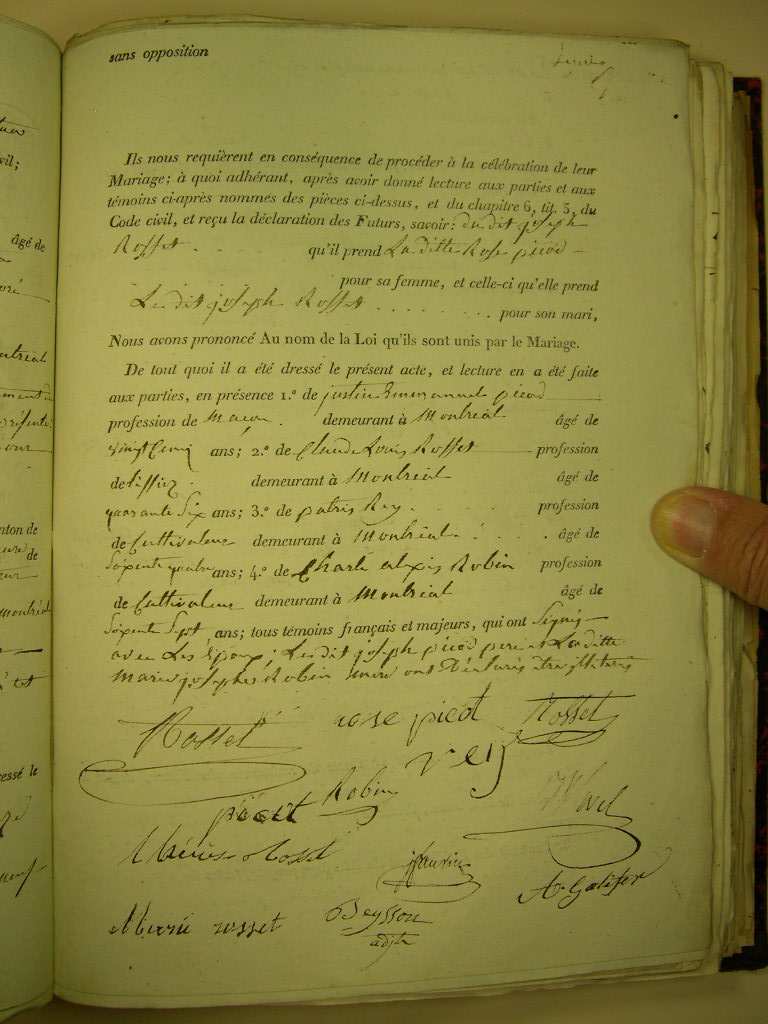 sans opposition
Ils nous requièrent en conséquence de procéder à la célébration de leur
Mariage; à quoi adhérant, après avoir donné lecture aux parties et aux
témoins ci-après nommés des pièces ci-dessus, et du chapitre 6, tit. 5, du
Code civil, et reçu la déclaration des Futurs, savoir: du dit joseph
Rosset . . qu'il prend La ditte Rose picod
pour sa femme, et celle-ci qu'elle prend
Le dit joseph Rosset . . . . . . . . pour son mari,
Nous avons prononcé Au nom de la Loi qu'ils sont unis par le Mariage.
De tout quoi il a été dressé le présent acte, et lecture en a été faite
aux parties, en présence 1.° de justin Emmanuel picod
profession de maçon . demeurant à Montréal âgé de
vingt Cinq ans; 2.° de Claude Louis Rosset profession
de demeurant à Montréal âgé de
quarante Six ans; 3.° de patris Rey . . . . profession
de Cultivateur demeurant à Montréal . . . âgé de
Soixente quatre ans; 4.° de Charle alexis Robin profession
de Cultivateur demeurant à Montréal âgé de
Soixente Sept ans; tous témoins français et majeurs, qui ont Signés
avec Les Epoux; Le dit joseph picod pere et La ditte
Marie josephe Robin mere ont Déclarés être illiterés
Rosset rose picot Rosset
Rey
picot Robin
Rosset
Marie rosset Beysson
adjt